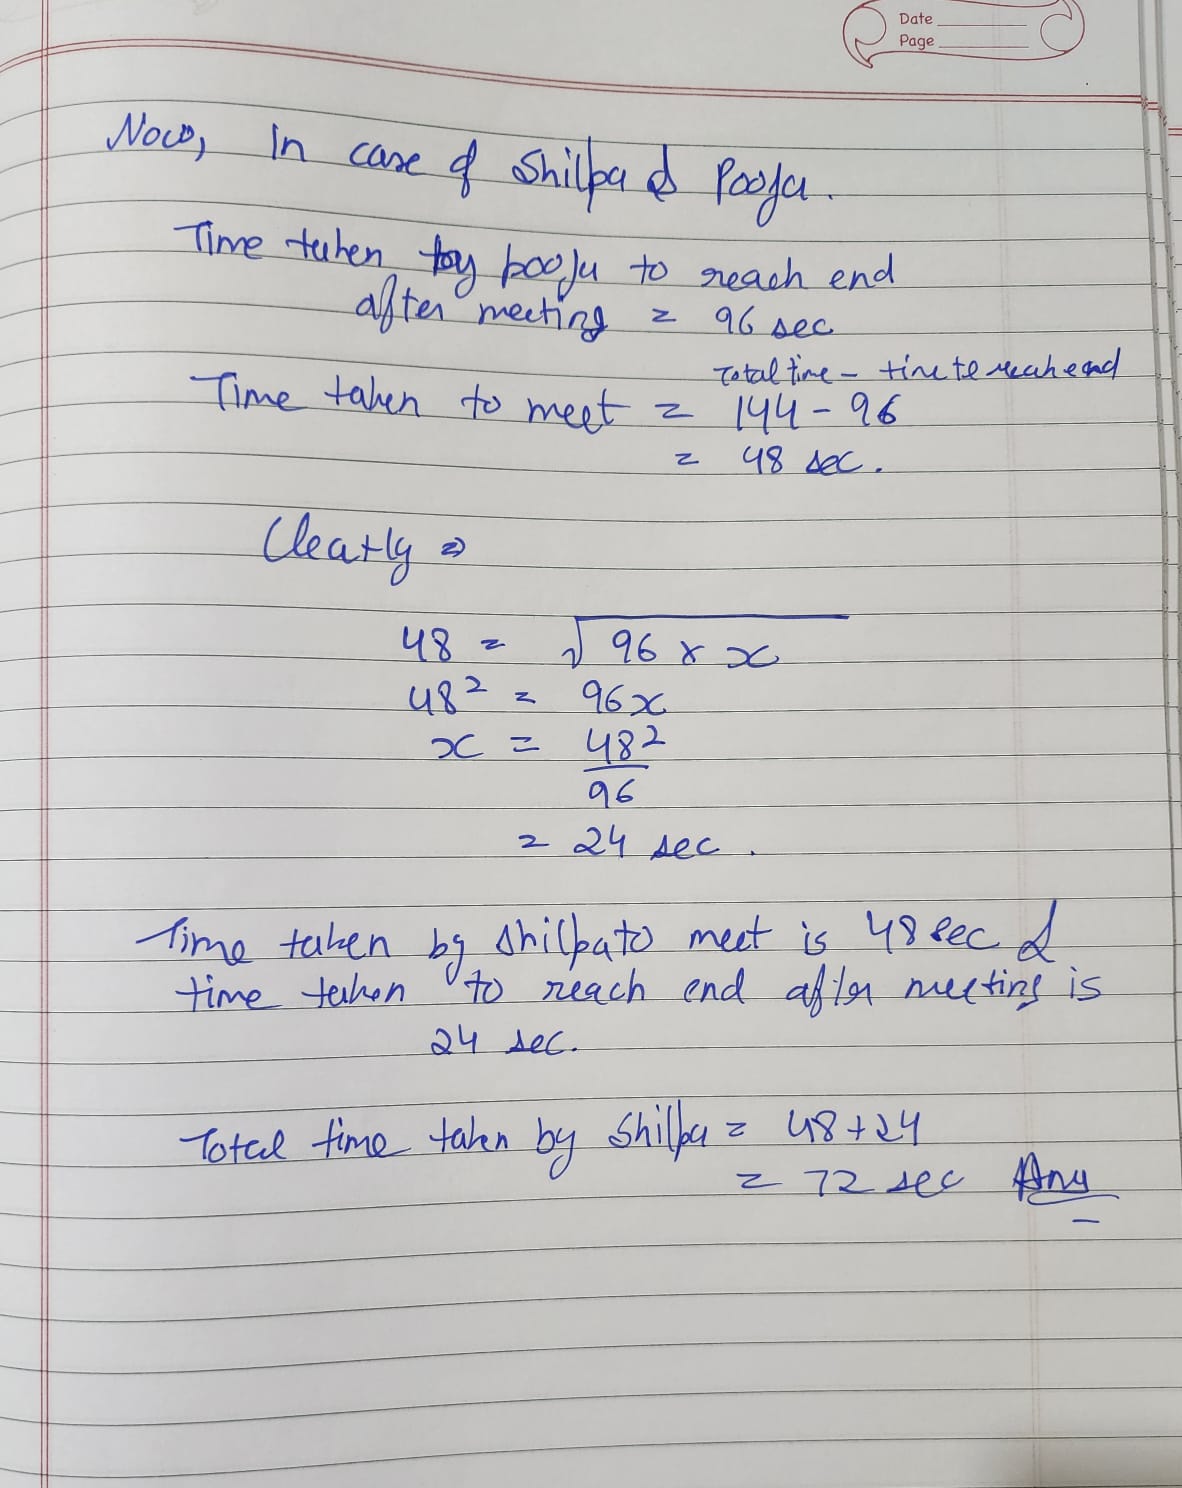 Date
Page
Now, In case of Shilpa & Pooja.
Time taken by pooja to reach end
after meeting = 96 sec
Total time - time to reach end
Time taken to meet = 144 - 96
= 48 sec.
Clearly ⇒
48 = √96 × x
48² = 96x
x = 48²
96
= 24 sec.
Time taken by Shilpa to meet is 48 sec &
time taken to reach end after meeting is
24 sec.
Total time taken by Shilpa = 48+24
= 72 sec Ans